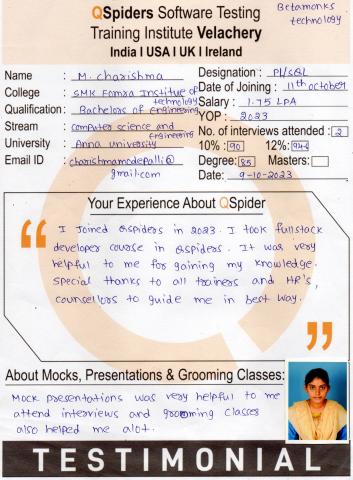 QSpiders Software Testing
Betamonks
technology
Training Institute Velachery
India I USA I UK I Ireland
Name : M. charishma
Designation : Pl/SQL
College : SMK Fomra Institue of technology
Date of Joining : 11th october
Qualification : Bachelors of Engineering
Salary : 1.75 LPA
YOP : 2023
Stream : computer science and Engineering
No. of interviews attended : 2
University : Anna university
10% : 90 12% :
Email ID : charishmamodepalli@
gmail.com
Degree: 85 Masters:
Date: 9-10-2023
Your Experience About QSpider
I Joined Qspiders in 2023. I took fullstack
developer course in Qspiders. It was very
helpful to me for gaining my knowledge.
Special thanks to all trainers and HR's,
counsellors to guide me in best way.
About Mocks, Presentations & Grooming Classes:
Mock presentations was very helpful to me
attend interviews and grooming classes
also helped me alot.
TESTIMONIAL